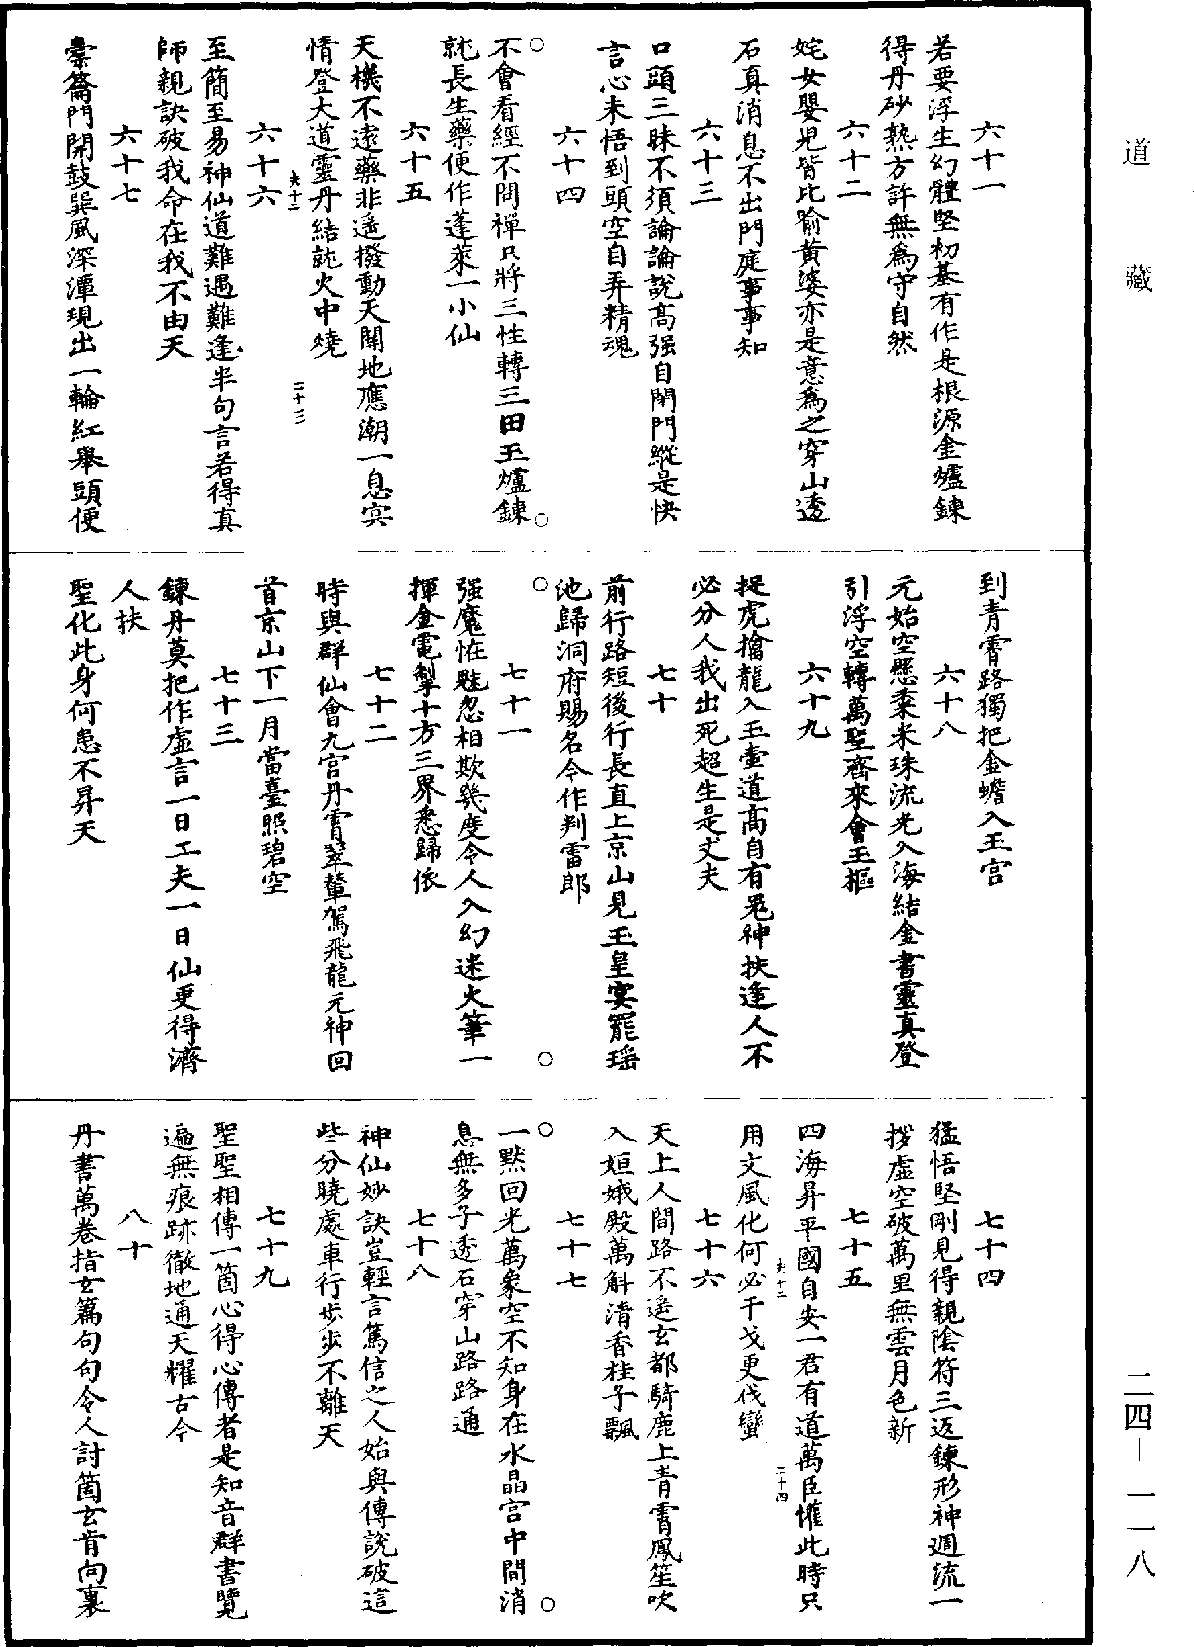 道藏
六十一
若要浮生幻體堅初基有作是根源金爐鍊
得丹砂熟方許無爲守自然
六十二
姹女嬰兒皆比喻黄婆亦是意爲之穿山透
石真消息不出門庭事事知
六十三
口頭三昧不須論論說高强自閉門縱是快
言心未悟到頭空自弄精魂
六十四
不會看經不問禪只將三性轉三田玉爐鍊
就長生藥便作蓬萊一小仙
六十五
天機不遠藥非遥撥動天關地應潮一息㝠
情登大道靈丹結就火中燒
夫十二
二十三
六十六
至簡至易神仙道難遇難逢半句言若得真
師親訣破我命在我不由天
六十七
橐籥門開鼓巽風深潭現出一輪紅舉頭便
到青霄路獨把金蟾入玉宫
六十八
元始空懸黍米珠流光入海結金書靈真登
引浮空轉萬聖齊來會玉樞
六十九
捉虎擒龍入玉壷道高自有鬼神扶逢人不
必分人我出死超生是丈夫
七十
前行路短後行長直上京山見玉皇宴罷瑶
池歸洞府賜名令作判雷郎
七十一
强魔恠魅忽相欺幾度令人入幻迷火筆一
揮金電掣十方三界悉歸依
七十二
時與群仙會九宫丹霄翠輦駕飛龍元神回
首京山下一月當臺照碧空
七十三
鍊丹莫把作虚言一日工夫一日仙更得濟
人扶
聖化此身何患不昇天
七十四
猛悟堅剛見得親陰符三返鍊形神週流一
拶虚空破萬里無雲月色新
七十五
四海昇平國自安一君有道萬臣懽此時只
用文風化何必干戈更伐蠻
夫十二
二十四
七十六
天上人間路不遥玄都騎鹿上青霄鳳笙吹
入姮娥殿萬斛清香桂子飄
七十七
一點回光萬象空不知身在水晶宫中間消
息無多子透石穿山路路通
七十八
神仙妙訣豈輕言篤信之人始與傳說破這
些分曉處車行步步不離天
七十九
聖聖相傳一箇心得心傳者是知音群書覽
遍無痕跡徹地通天耀古今
八十
丹書萬卷指玄篇句句令人討箇玄肯向裏
二四－一一八